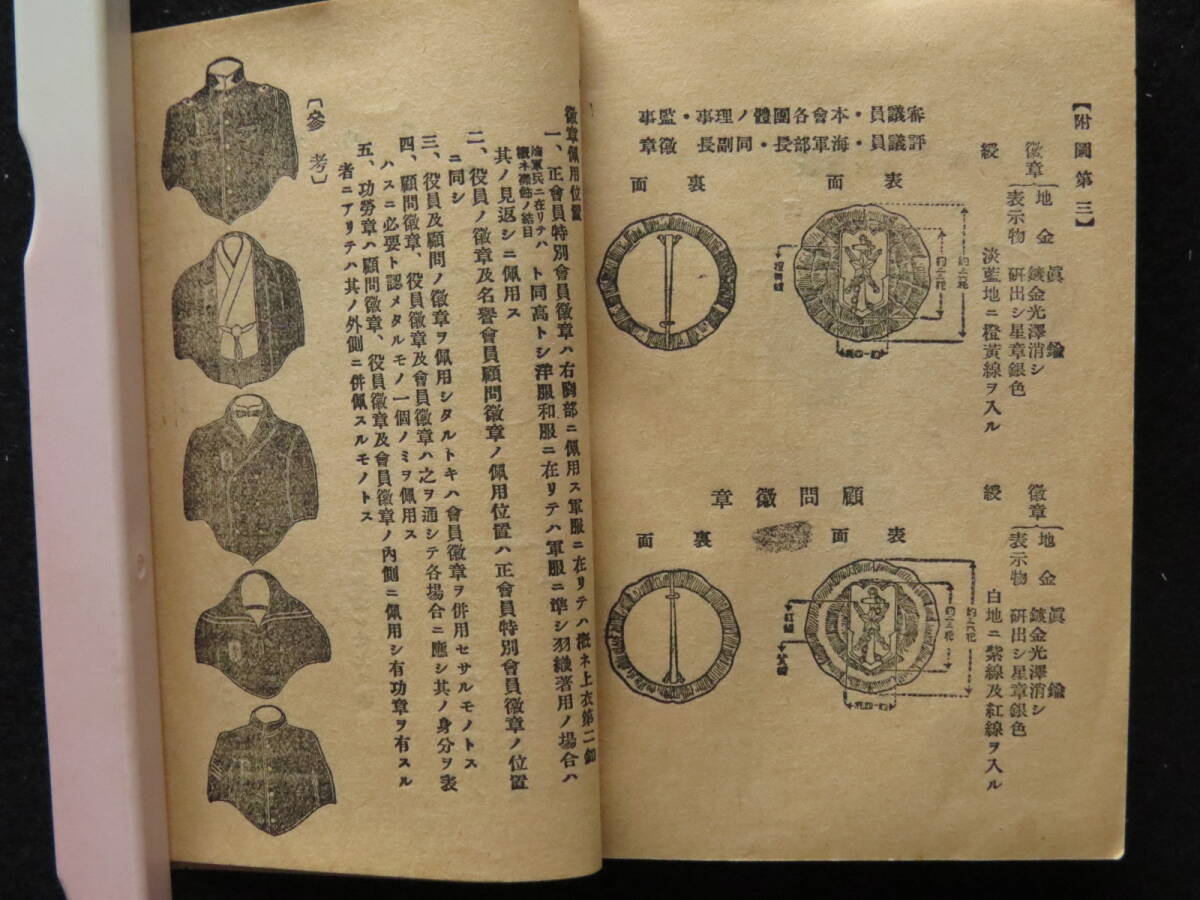 【附圖第三】
徽章
地金 眞鍮
鍍金光澤消シ
表示物 研出シ星章銀色
綬 淡藍地ニ橙黃線ヲ入ル
審議員・本會各團體ノ理事・監事
評議員・海軍部長・同副長 徽章
表面
裏面
徽章
地金 眞鍮
鍍金光澤消シ
表示物 研出シ星章銀色
綬 白地ニ紫線及紅線ヲ入ル
顧問徽章
表面
裏面
紅線
徽章佩用位置
一、正會員特別會員徽章ハ右胸部ニ佩用ス軍服ニ在リテハ概ネ上衣第二釦
海軍兵ニ在リテハ概ネ襟飾ノ結目 ト同高トシ洋服和服ニ在リテハ軍服ニ準シ羽織著用ノ場合ハ
其ノ見返シニ佩用ス
二、役員ノ徽章及名譽會員顧問徽章ノ佩用位置ハ正會員特別會員徽章ノ位置
ニ同シ
三、役員及顧問ノ徽章ヲ佩用シタルトキハ會員徽章ヲ併用セサルモノトス
四、顧問徽章、役員徽章及會員徽章ハ之ヲ通シテ各場合ニ應シ其ノ身分ヲ表
ハスニ必要ト認メタルモノ一個ノミヲ佩用ス
五、功勞章ハ顧問徽章、役員徽章及會員徽章ノ內側ニ佩用シ有功章ヲ有スル
者ニアリテハ其ノ外側ニ併佩スルモノトス
〔參考〕